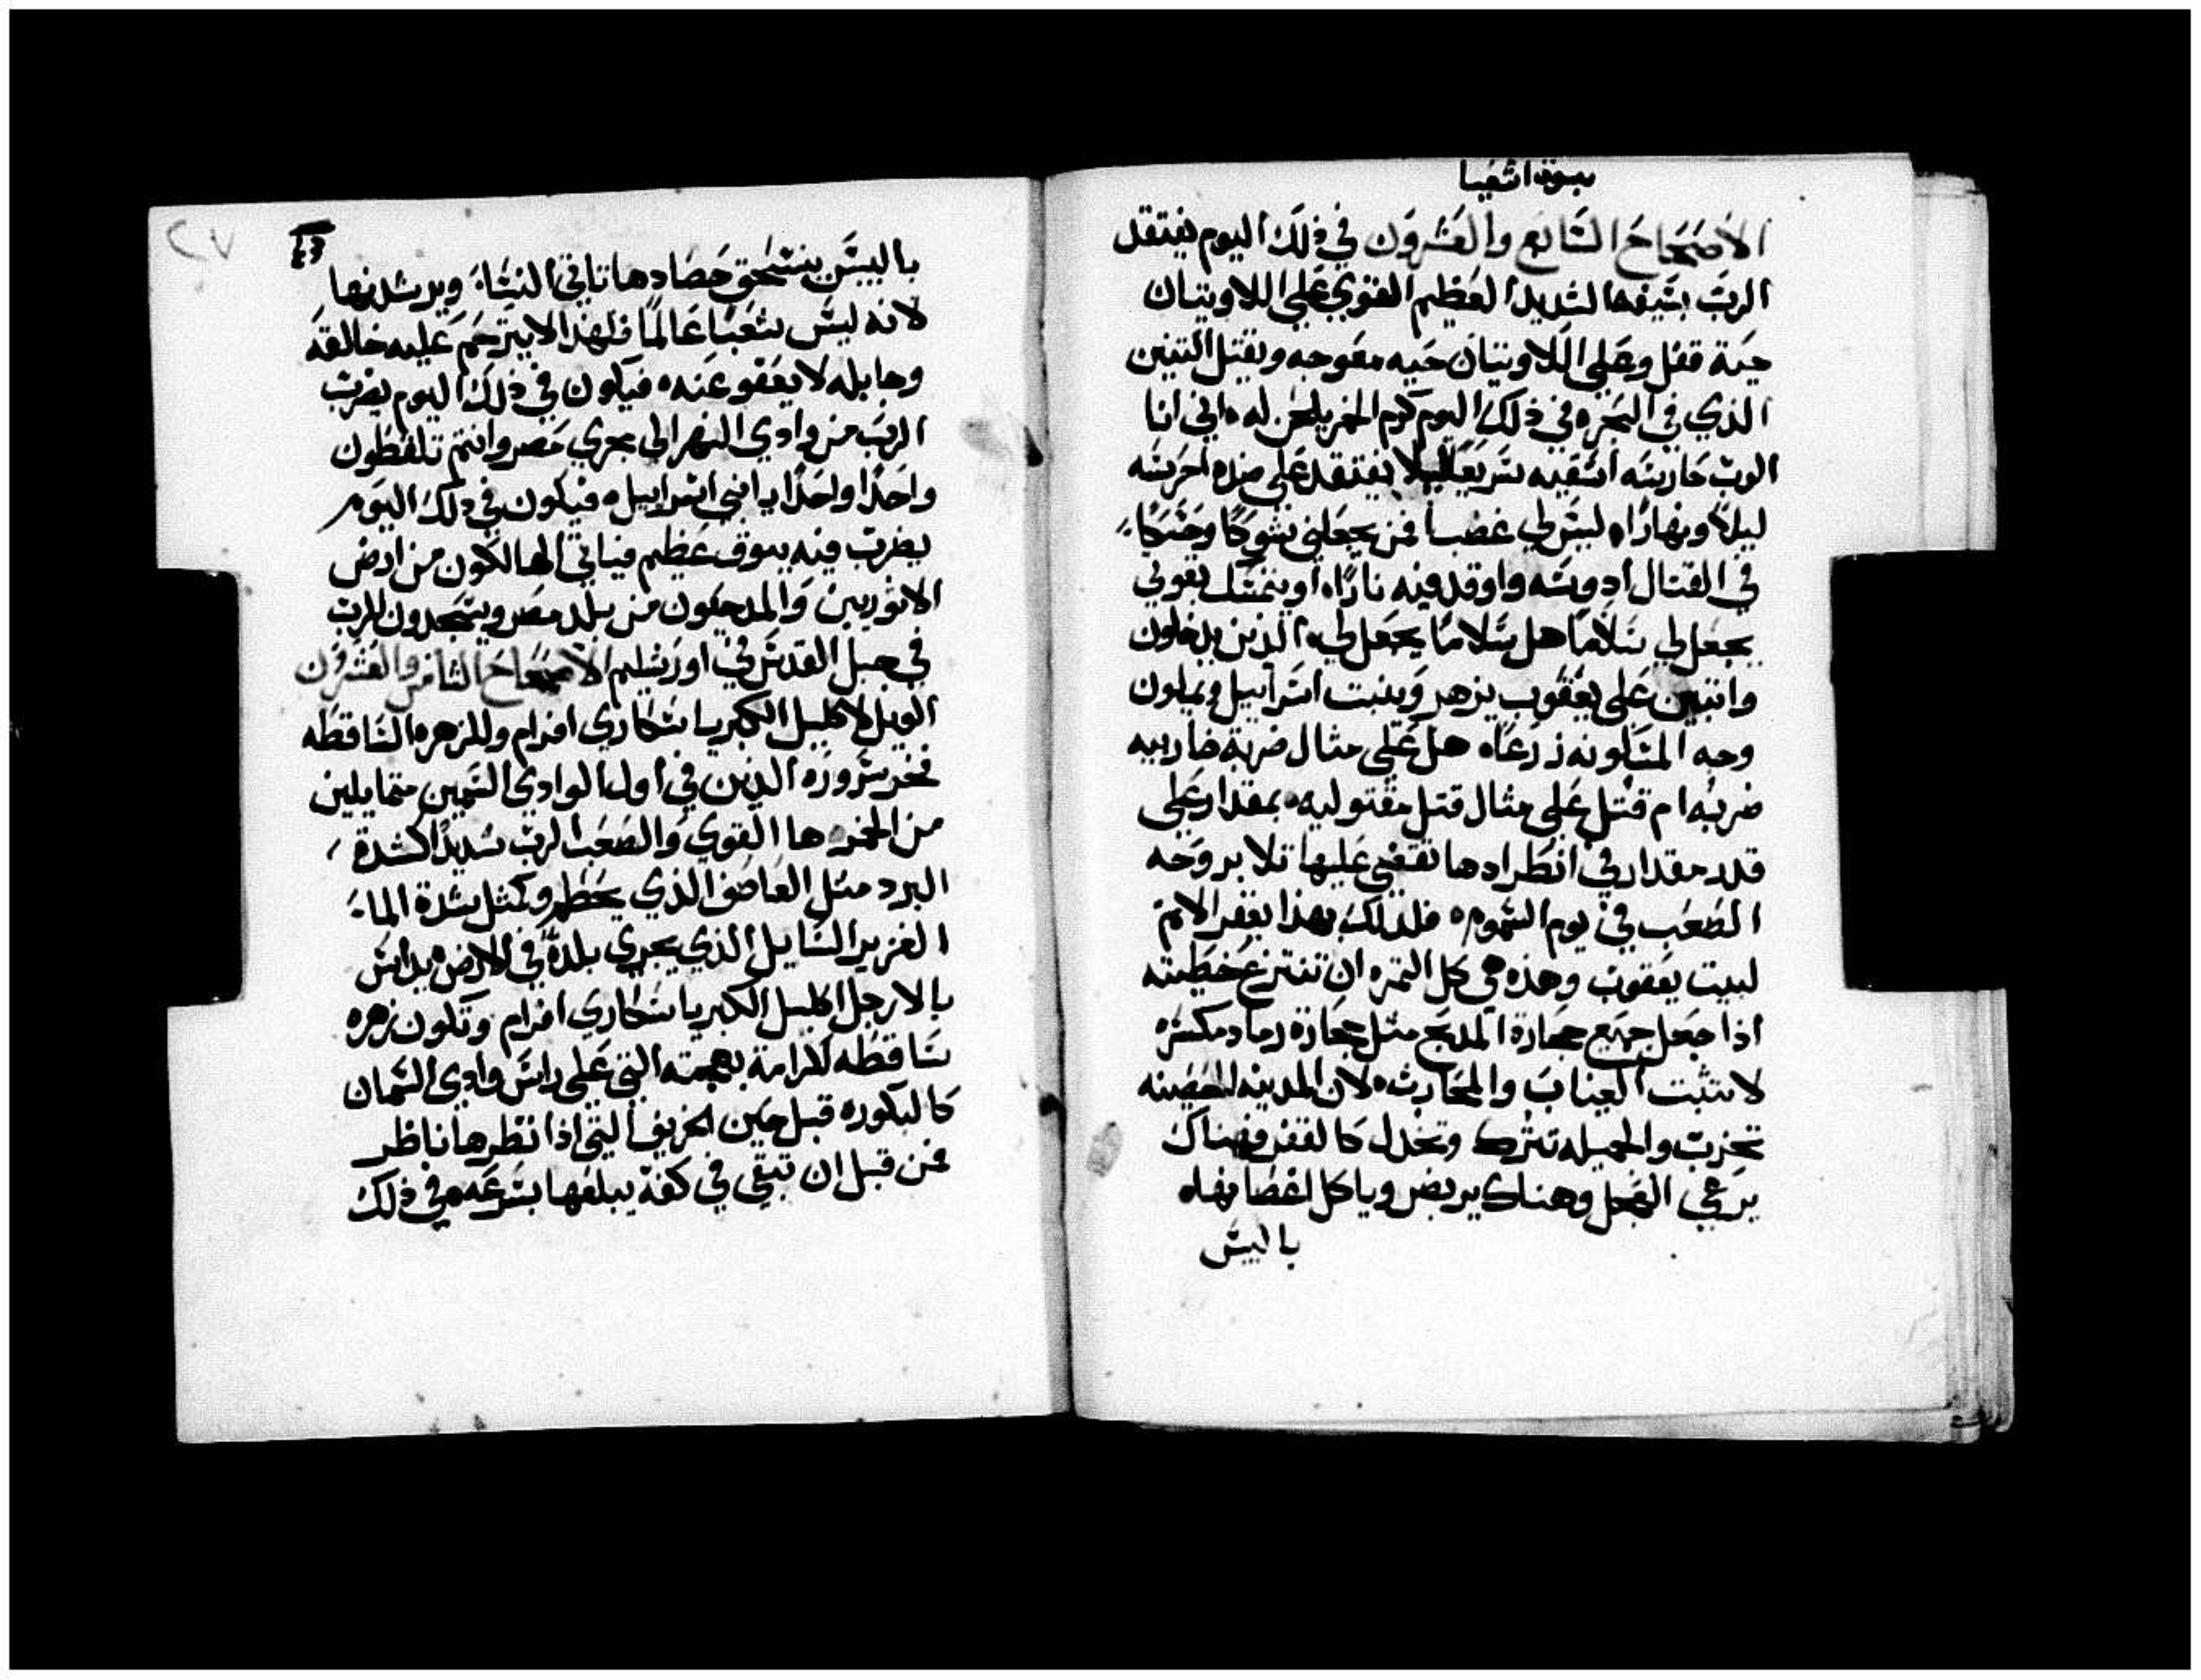 نبوة اشعيا
الاصحاح السابع والعشرون في ذلك اليوم يفتقد
الرب بسيفه الشديد العظيم القوي على اللاويتان
حية قفل وعلى اللاويتان حيه معوجه ويقتل التنين
الذي في البحره في ذلك اليوم كرم الخمر يلحن له ه اني انا
الرب حارسه اسقيه سريعا ليلا يفتقد على ضده احرسه
ليلا ونهارا ه ليس لي غضبا فمن يجعلني شوكا وحسكا
في القتال ادوسه واوقد فيه نارا ه او يتمسك بقوتي
يجعل لي سلاما هل سلاما يجعل لي ه الذين يدخلون
واثبين على يعقوب يزهر وينبت اسراييل ويملون
وجه المسكونه زرعا ه هل على مثال ضربة ضاربيه
ضربه ام قتل على مثال قتل مقتوليه ه بمقدار على
قدر مقدار في انطرادها تقضي عليها تلا بروحه
الصعب في يوم السموم ه فلذلك بهذا يغفر الاثم
لبيت يعقوب وهذه هي كل الثمره ان تنتزع خطيته
اذا جعل جميع حجارة المذبح مثل حجارة رماد مكسره
لا تثبت الغياب والمحارث ه لان المدينه الحصينه
تخرب والجميله تترك وتخذل كالقفر فهناك
يرعي العجل وهناك يربض وياكل اغصانها ه
باليبس
باليبس ينسحق حصادها تاتي النساء ويرشدنها
لانه ليس شعبا عالما فلهذا لا يترحم عليه خالقه
وجابله لا يعفو عنه ه فيكون في ذلك اليوم يضرب
الرب من وادي النهر الى مجري مصر وانتم تلقطون
واحدا واحدا يا بني اسراييل ه فيكون في ذلك اليوم
يضرب فيه ببوق عظيم فياتي الهالكون من ارض
الاثوريين والمدحيون من بلد مصر ويسجدون للرب
في جبل القدس في اورشليم الاصحاح الثامن والعشرون
الويل لاكليل الكبريا سكاري افرام وللزهره الساقطه
فخر سروره الذين في اول الوادي السمين متمايلين
من الخمر ه ها القوي والصعب الرب شديدا كشدة
البرد مثل العاصف الذي يحطم وكمثل شدة الماء
الغزير السايل الذي يجري بلده في الارض ه يداس
بالارجل اكليل الكبريا سكاري افرام وتكون زهره
ساقطه لكرامة بهجته التي على راس وادي السمان
كالبكوره قبل حين الخريف التي اذا نظرها ناظر
فمن قبل ان تبقي في كفه يبلعها بسرعه ه في ذلك